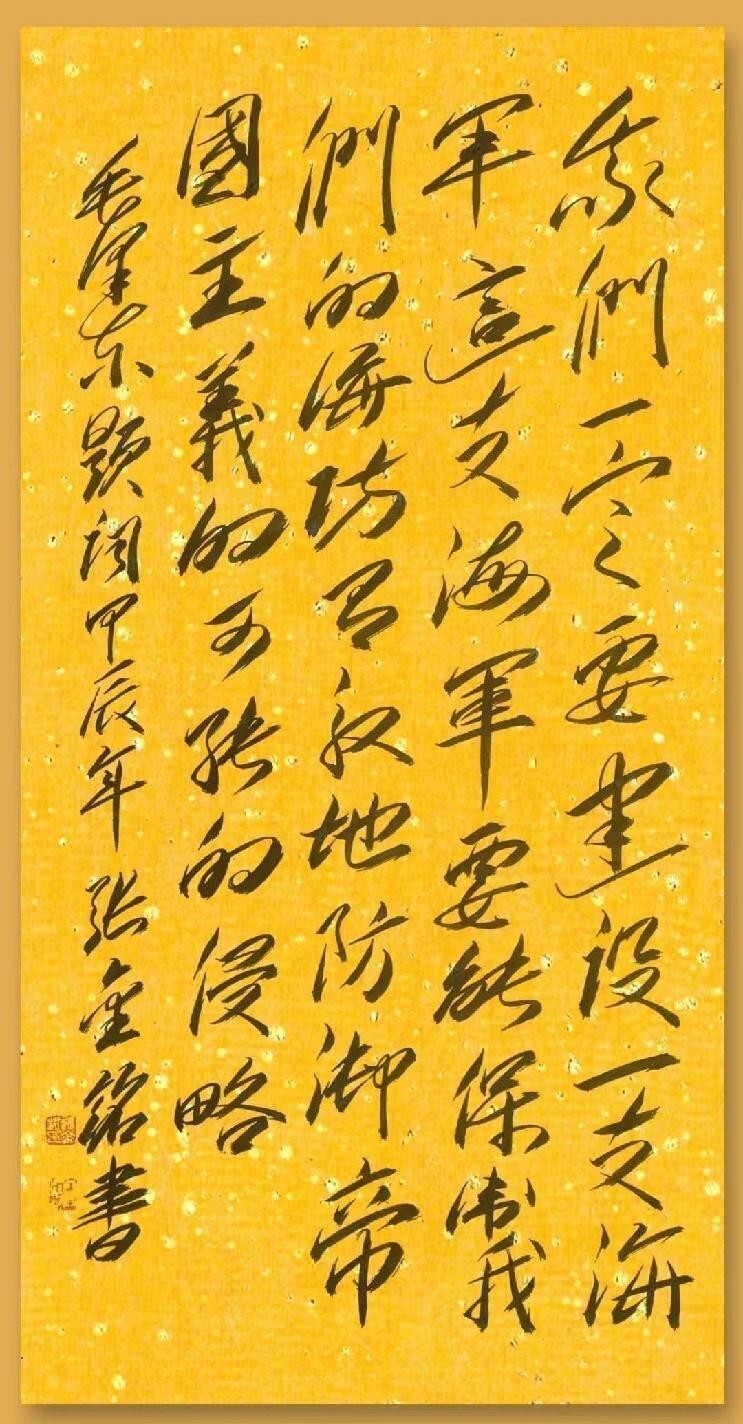 我們一定要建設一支海
軍這支海軍要能保衛我
們的海防有效地防御帝
國主義的可能的侵略
毛澤東題詞甲辰年張金銘書